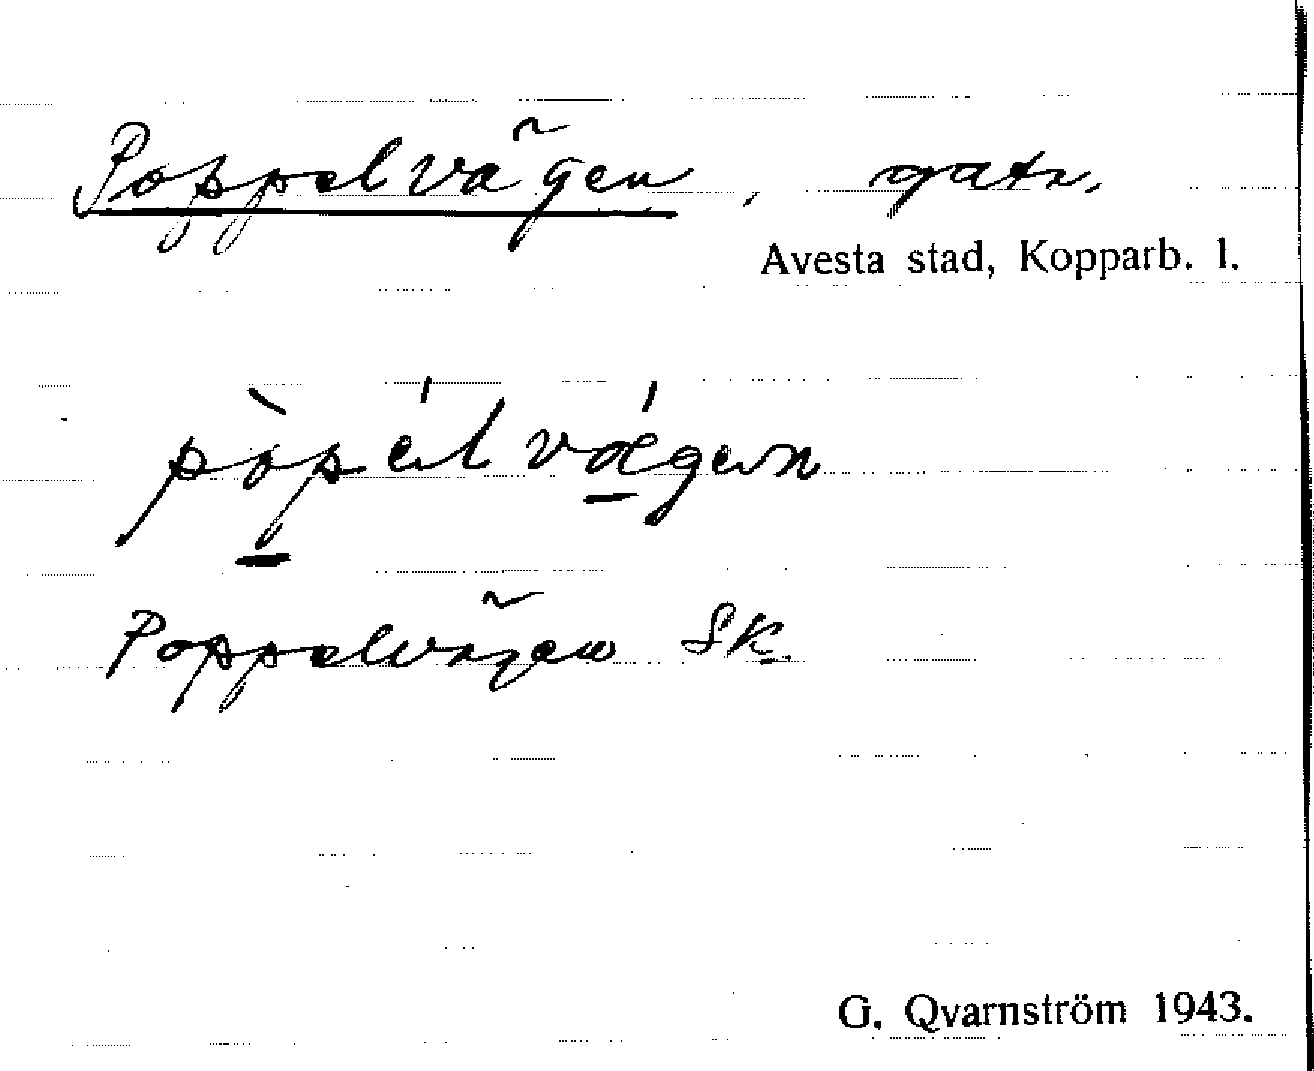 Poppelvägen, gatn.
Avesta stad, Kopparb. l.
Poppelvägen SK.
G. Qvarnström 1943.